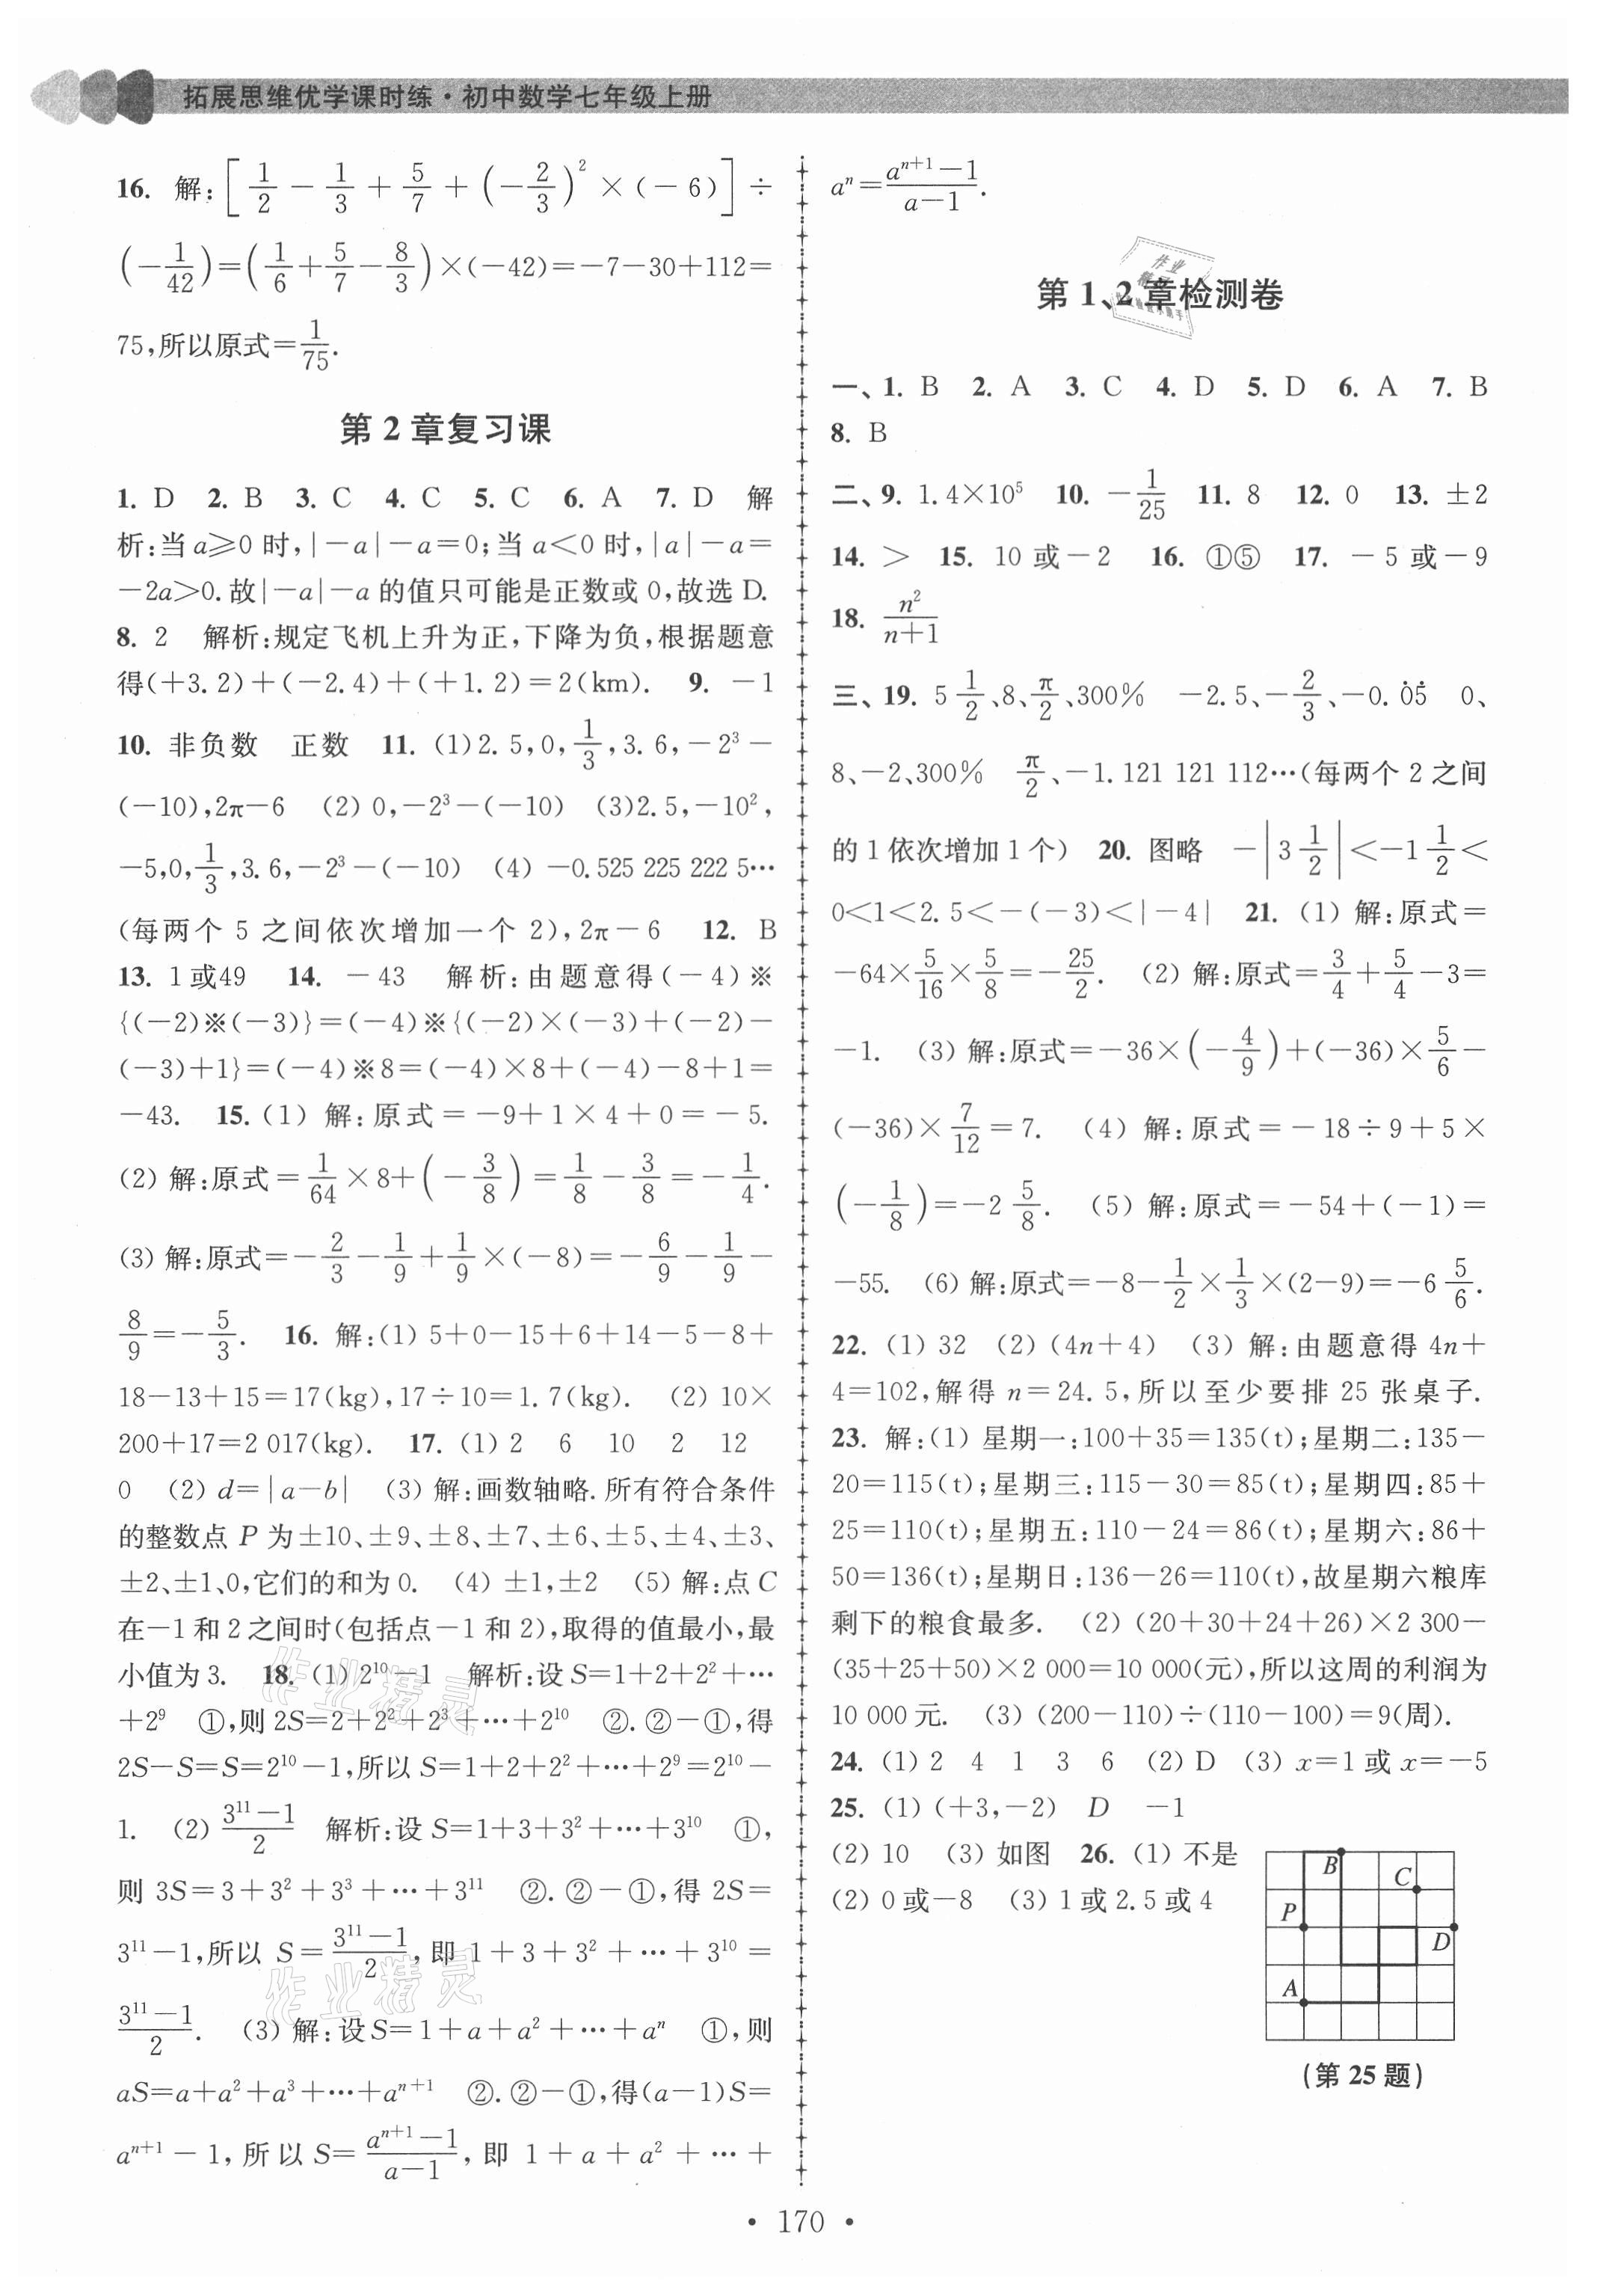 拓展思维优学课时练·初中数学七年级上册
16. 解:[1/2-1/3+5/7+(-2/3)²×(-6)]÷
(-1/42)=(1/6+5/7-8/3)×(-42)=-7-30+112=
75,所以原式=1/75.
第2章复习课
1. D 2. B 3. C 4. C 5. C 6. A 7. D 解
析:当a≥0时,|-a|-a=0;当a<0时,|a|-a=
-2a>0.故|-a|-a的值只可能是正数或0,故选D.
8. 2 解析:规定飞机上升为正,下降为负,根据题意
得(+3.2)+(-2.4)+(+1.2)=2(km). 9. -1
10. 非负数 正数 11. (1)2.5,0,1/3,3.6,-2³-
(-10),2π-6 (2) 0,-2³-(-10) (3)2.5,-10²,
-5,0,1/3,3.6,-2³-(-10) (4) -0.525 225 222 5…
(每两个5之间依次增加一个2),2π-6 12. B
13. 1或49 14. -43 解析:由题意得(-4)※
{(-2)※(-3)}=(-4)※{(-2)×(-3)+(-2)-
(-3)+1}=(-4)※8=(-4)×8+(-4)-8+1=
-43. 15. (1) 解:原式=-9+1×4+0=-5.
(2) 解:原式=1/64×8+(-3/8)=1/8-3/8=-1/4.
(3) 解:原式=-2/3-1/9+1/9×(-8)=-6/9-1/9-
8/9=-5/3. 16. 解:(1) 5+0-15+6+14-5-8+
18-13+15=17(kg),17÷10=1.7(kg). (2) 10×
200+17=2 017(kg). 17. (1) 2 6 10 2 12
0 (2) d=|a-b| (3) 解:画数轴略.所有符合条件
的整数点P为±10、±9、±8、±7、±6、±5、±4、±3、
±2、±1、0,它们的和为0. (4) ±1,±2 (5) 解:点C
在-1和2之间时(包括点-1和2),取得的值最小,最
小值为3. 18. (1) 2¹⁰-1 解析:设S=1+2+2²+…
+2⁹ ①,则2S=2+2²+2³+…+2¹⁰ ②.②-①,得
2S-S=S=2¹⁰-1,所以S=1+2+2²+…+2⁹=2¹⁰-
1. (2) (3¹¹-1)/2 解析:设S=1+3+3²+…+3¹⁰ ①,
则3S=3+3²+3³+…+3¹¹ ②.②-①,得2S=
3¹¹-1,所以S=(3¹¹-1)/2,即1+3+3²+…+3¹⁰=
(3¹¹-1)/2. (3) 解:设S=1+a+a²+…+aⁿ ①,则
aS=a+a²+a³+…+aⁿ⁺¹ ②.②-①,得(a-1)S=
aⁿ⁺¹-1,所以S=(aⁿ⁺¹-1)/(a-1),即1+a+a²+…+
aⁿ=(aⁿ⁺¹-1)/(a-1).
第1、2章检测卷
一、1. B 2. A 3. C 4. D 5. D 6. A 7. B
8. B
二、9. 1.4×10⁵ 10. -1/25 11. 8 12. 0 13. ±2
14. > 15. 10或-2 16. ①⑤ 17. -5或-9
18. n²/(n+1)
三、19. 5 1/2、8、π/2、300% -2.5、-2/3、-0.0̇5̇ 0、
8、-2、300% π/2、-1.121 121 112…(每两个2之间
的1依次增加1个) 20. 图略 -|3 1/2|<-1 1/2<
0<1<2.5<-(-3)<|-4| 21. (1) 解:原式=
-64×5/16×5/8=-25/2. (2) 解:原式=3/4+5/4-3=
-1. (3) 解:原式=-36×(-4/9)+(-36)×5/6-
(-36)×7/12=7. (4) 解:原式=-18÷9+5×
(-1/8)=-2 5/8. (5) 解:原式=-54+(-1)=
-55. (6) 解:原式=-8-1/2×1/3×(2-9)=-6 5/6.
22. (1) 32 (2) (4n+4) (3) 解:由题意得4n+
4=102,解得n=24.5,所以至少要排25张桌子.
23. 解:(1) 星期一:100+35=135(t);星期二:135-
20=115(t);星期三:115-30=85(t);星期四:85+
25=110(t);星期五:110-24=86(t);星期六:86+
50=136(t);星期日:136-26=110(t),故星期六粮库
剩下的粮食最多. (2) (20+30+24+26)×2 300-
(35+25+50)×2 000=10 000(元),所以这周的利润为
10 000元. (3) (200-110)÷(110-100)=9(周).
24. (1) 2 4 1 3 6 (2) D (3) x=1或x=-5
25. (1) (+3,-2) D -1
(2) 10 (3) 如图 26. (1) 不是
(2) 0或-8 (3) 1或2.5或4
B
C
P
D
A
(第25题)
作业精灵
作业精灵
• 170 •